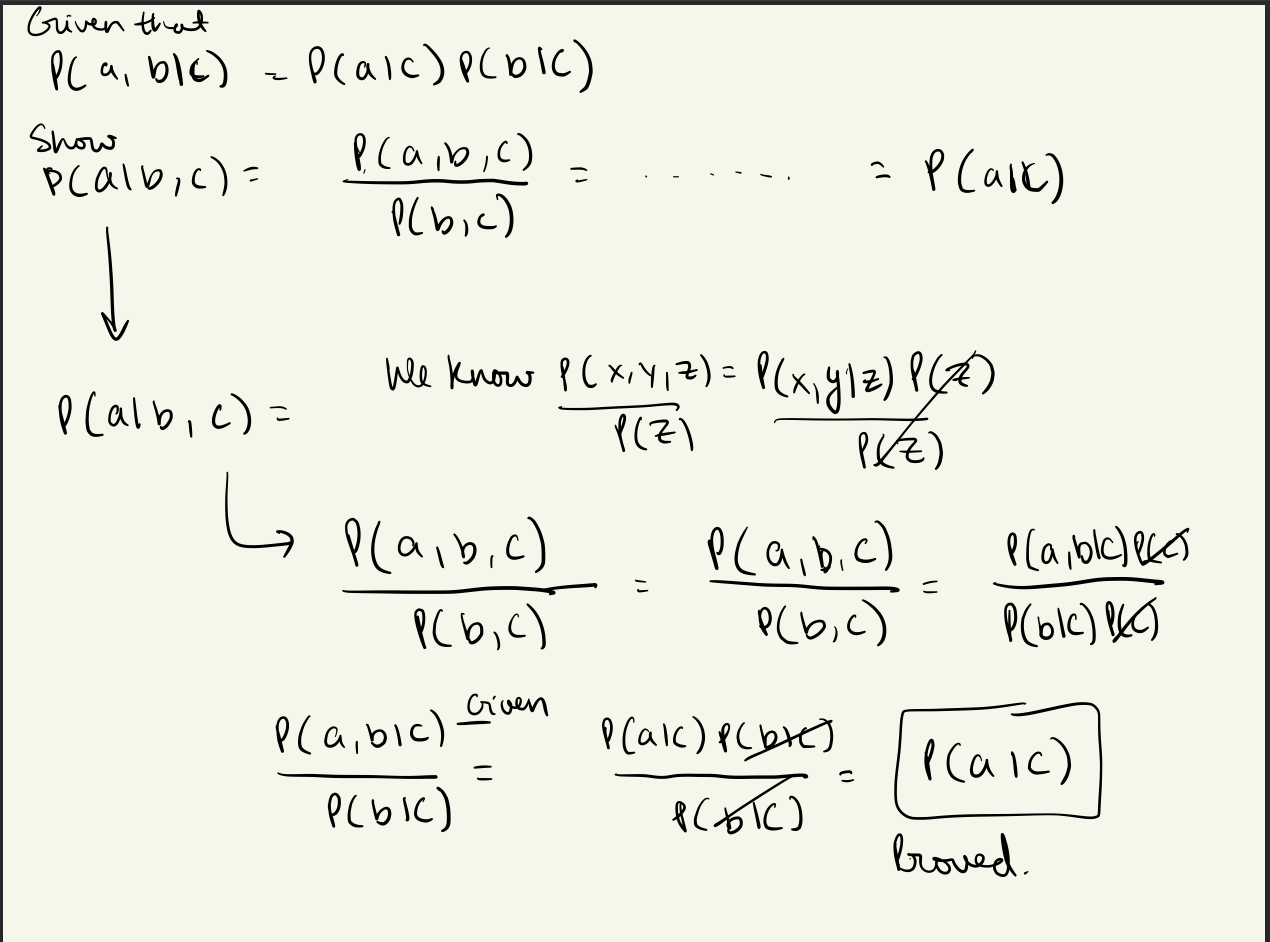 Given that
P(a, b|c) = P(a|c) P(b|c)
Show
P(a|b,c) = P(a,b,c) / P(b,c) = ....... = P(a|c)
We know P(x,y,z) / P(z) = P(x,y|z) P(z) / P(z)
P(a|b,c) =
P(a,b,c) / P(b,c) = P(a,b,c) / P(b,c) = P(a,b|c)P(c) / P(b|c)P(c)
P(a,b|c) / P(b|c) = Given P(a|c) P(b|c) / P(b|c) = P(a|c)
Proved.